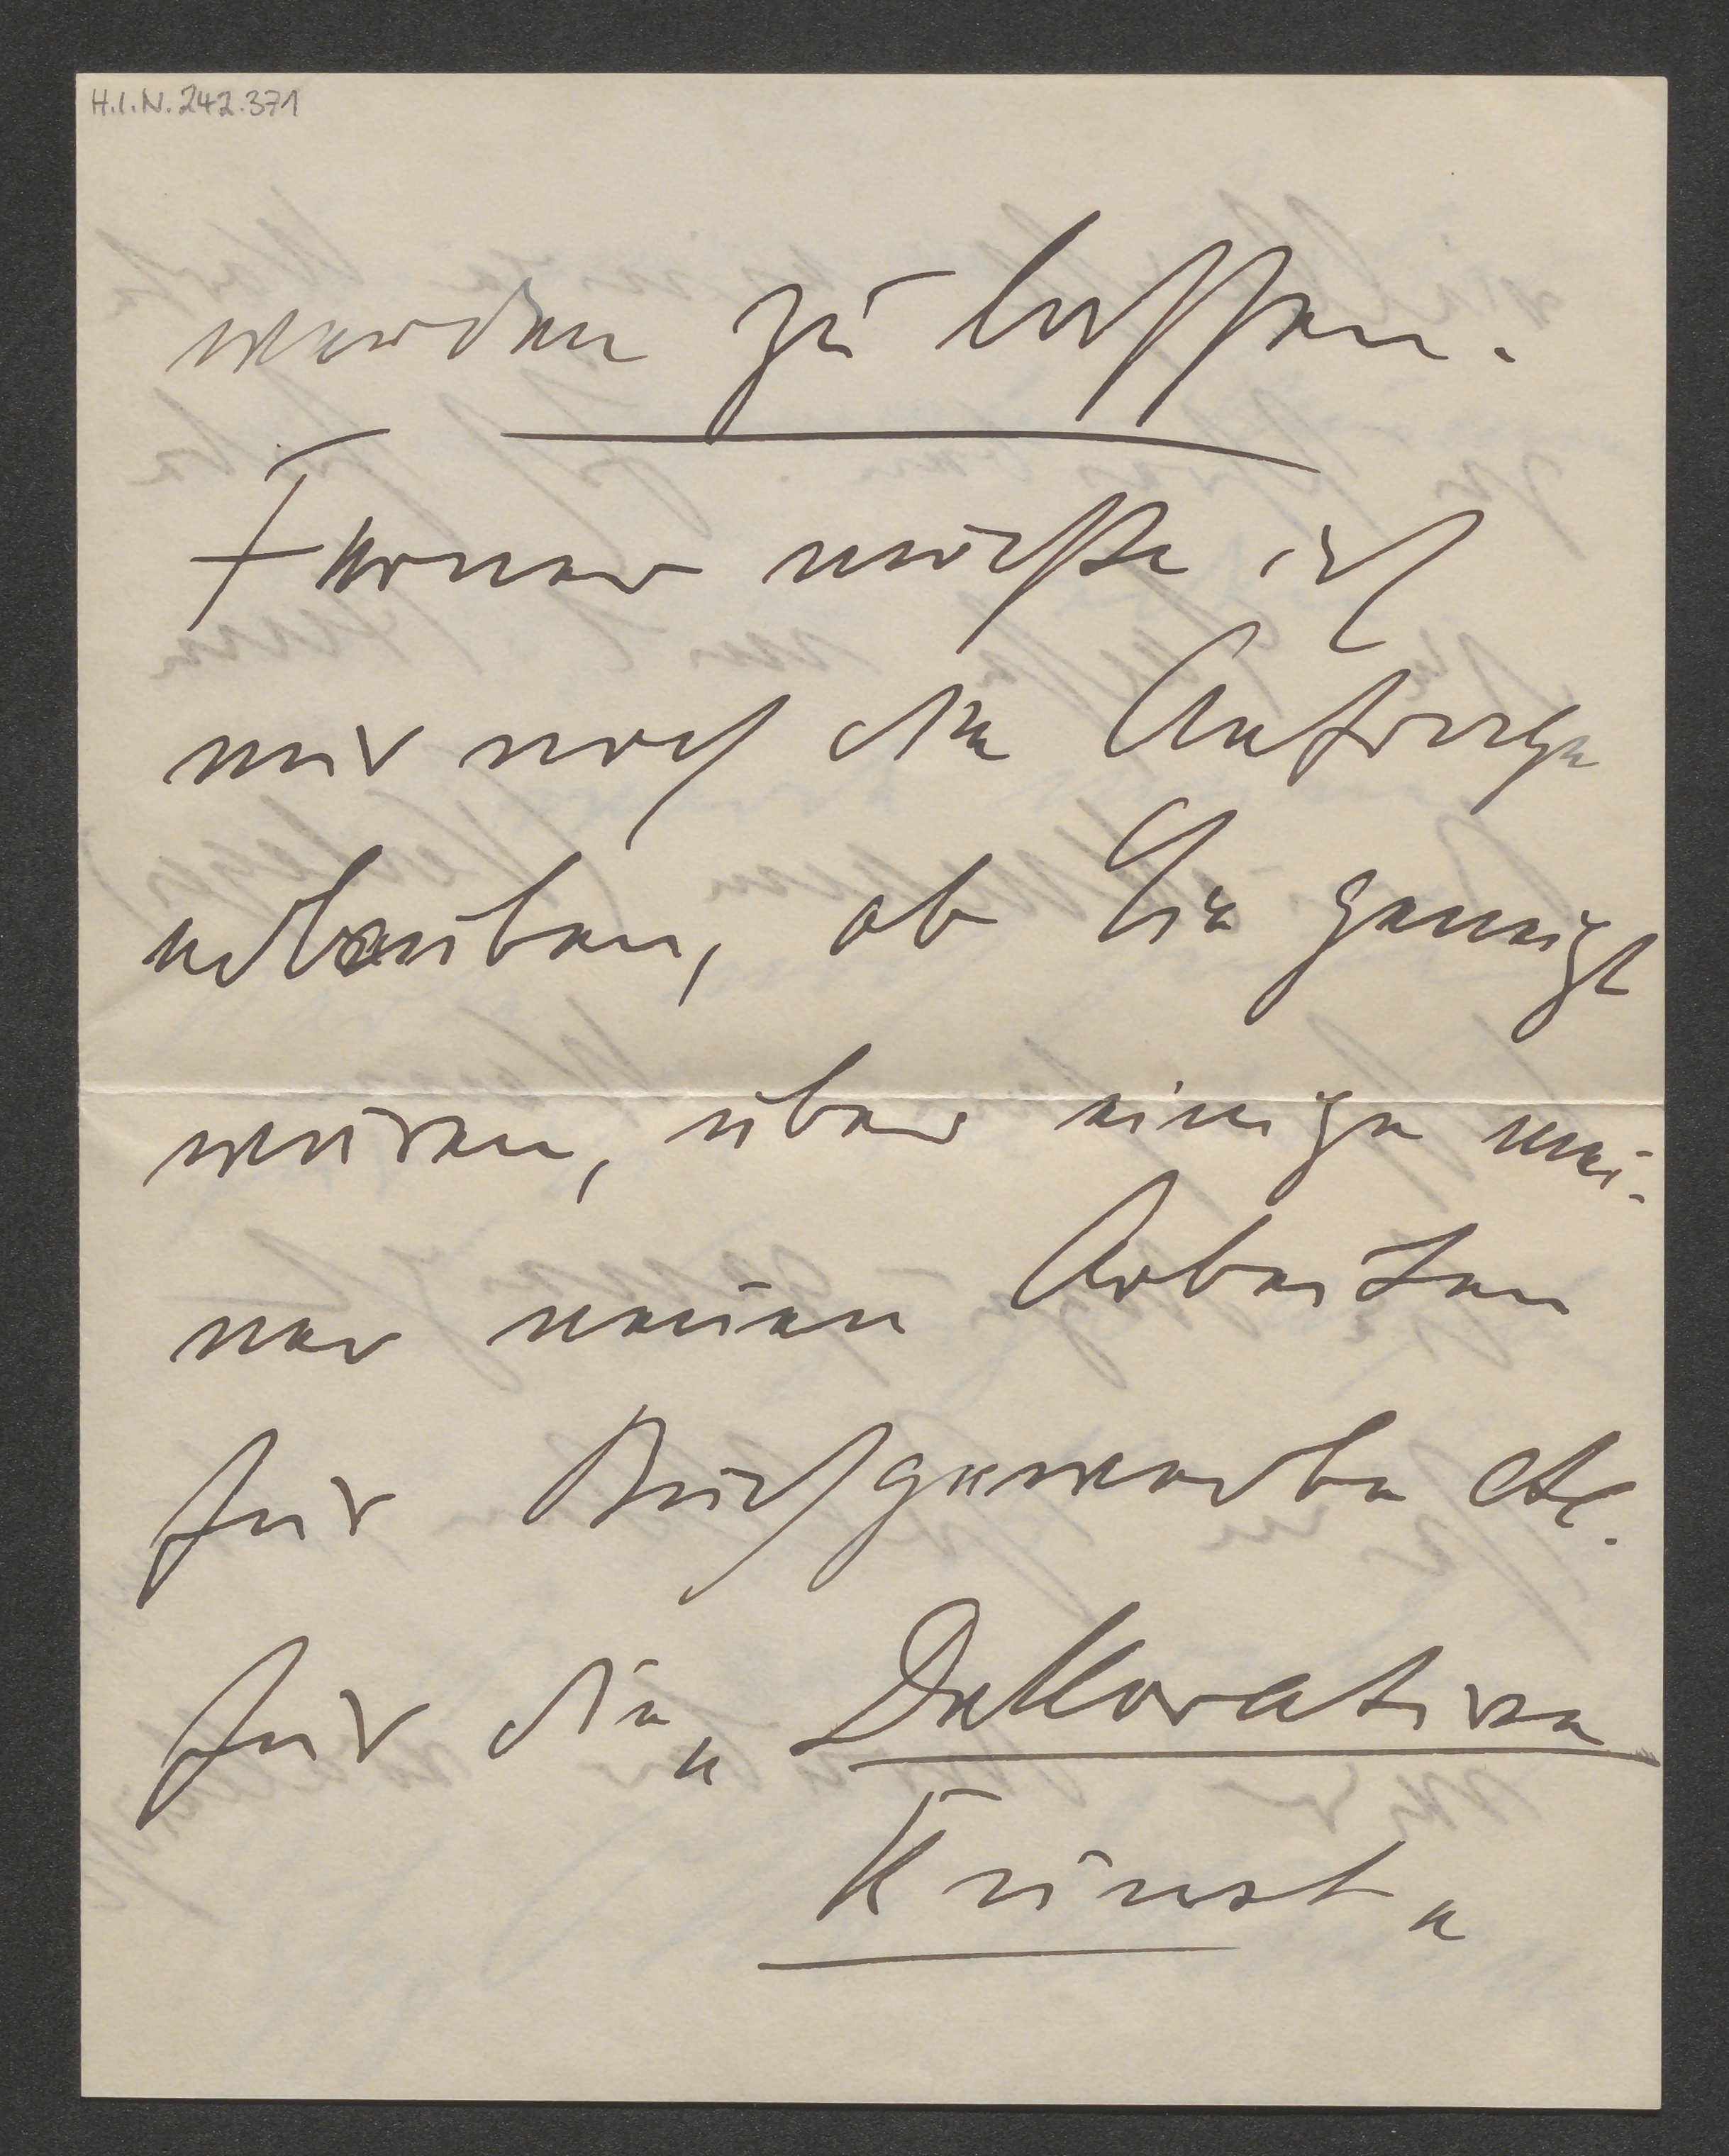 H.I.N. 242.371
werden zu lassen.
Ferner möchte ich
mir noch die Anfrage
erlauben, ob Sie geneigt
wären, über einige mei-
ner neuen Arbeiten
für Buchgewerbe etc.
für die „Dekorative
Kunst„